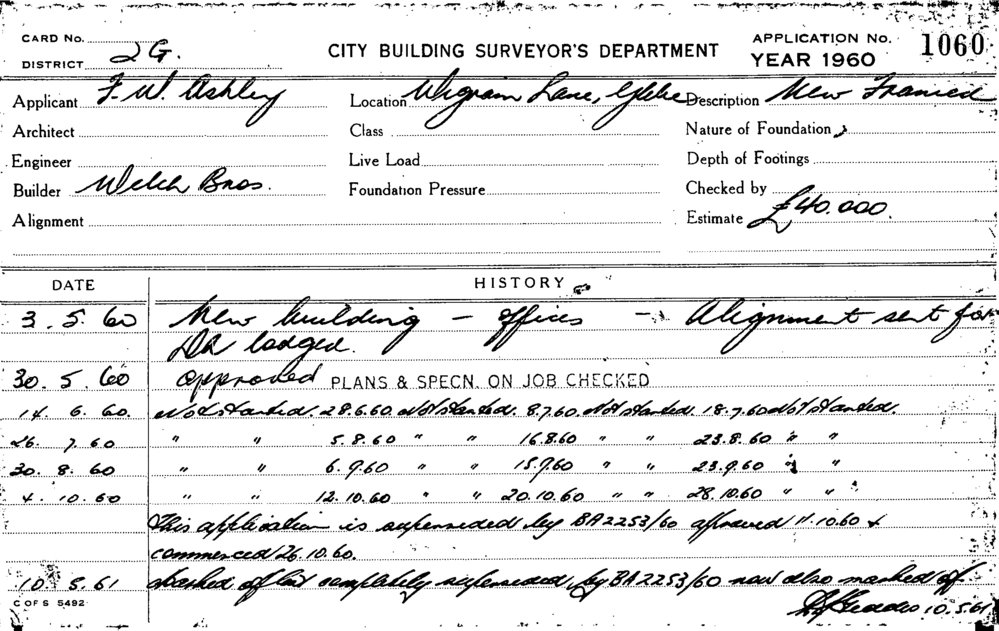 CARD No. CITY BUILDING SURVEYOR'S DEPARTMENT APPLICATION No. 1060
DISTRICT 2G. YEAR 1960
Applicant F. W. Ashley Location Wigram Lane, Glebe Description New Framed
Architect Class Nature of Foundation
Engineer Live Load Depth of Footings
Builder Welch Bros. Foundation Pressure Checked by
Alignment Estimate £40.000.
DATE HISTORY
3. 5. 60 New building - offices - Alignment sent for
DA lodged.
30. 5. 60 approved PLANS & SPECN. ON JOB CHECKED
14. 6. 60. Not started. 28.6.60 Not started. 8.7.60. Not started. 18.7.60 Not started.
26. 7. 60 " " 5.8.60 " " 16.8.60 " " 23.8.60 " "
30. 8. 60 " " 6.9.60 " " 15.9.60 " " 23.9.60 " "
4. 10. 60 " " 12.10.60 " " 20.10.60 " " 28.10.60 " "
This application is superseded by BA2253/60 approved 11.10.60 &
commenced 26.10.60.
10. 5. 61 marked off but completely superseded by BA2253/60 now also marked off
10.5.61
C OF S 5492